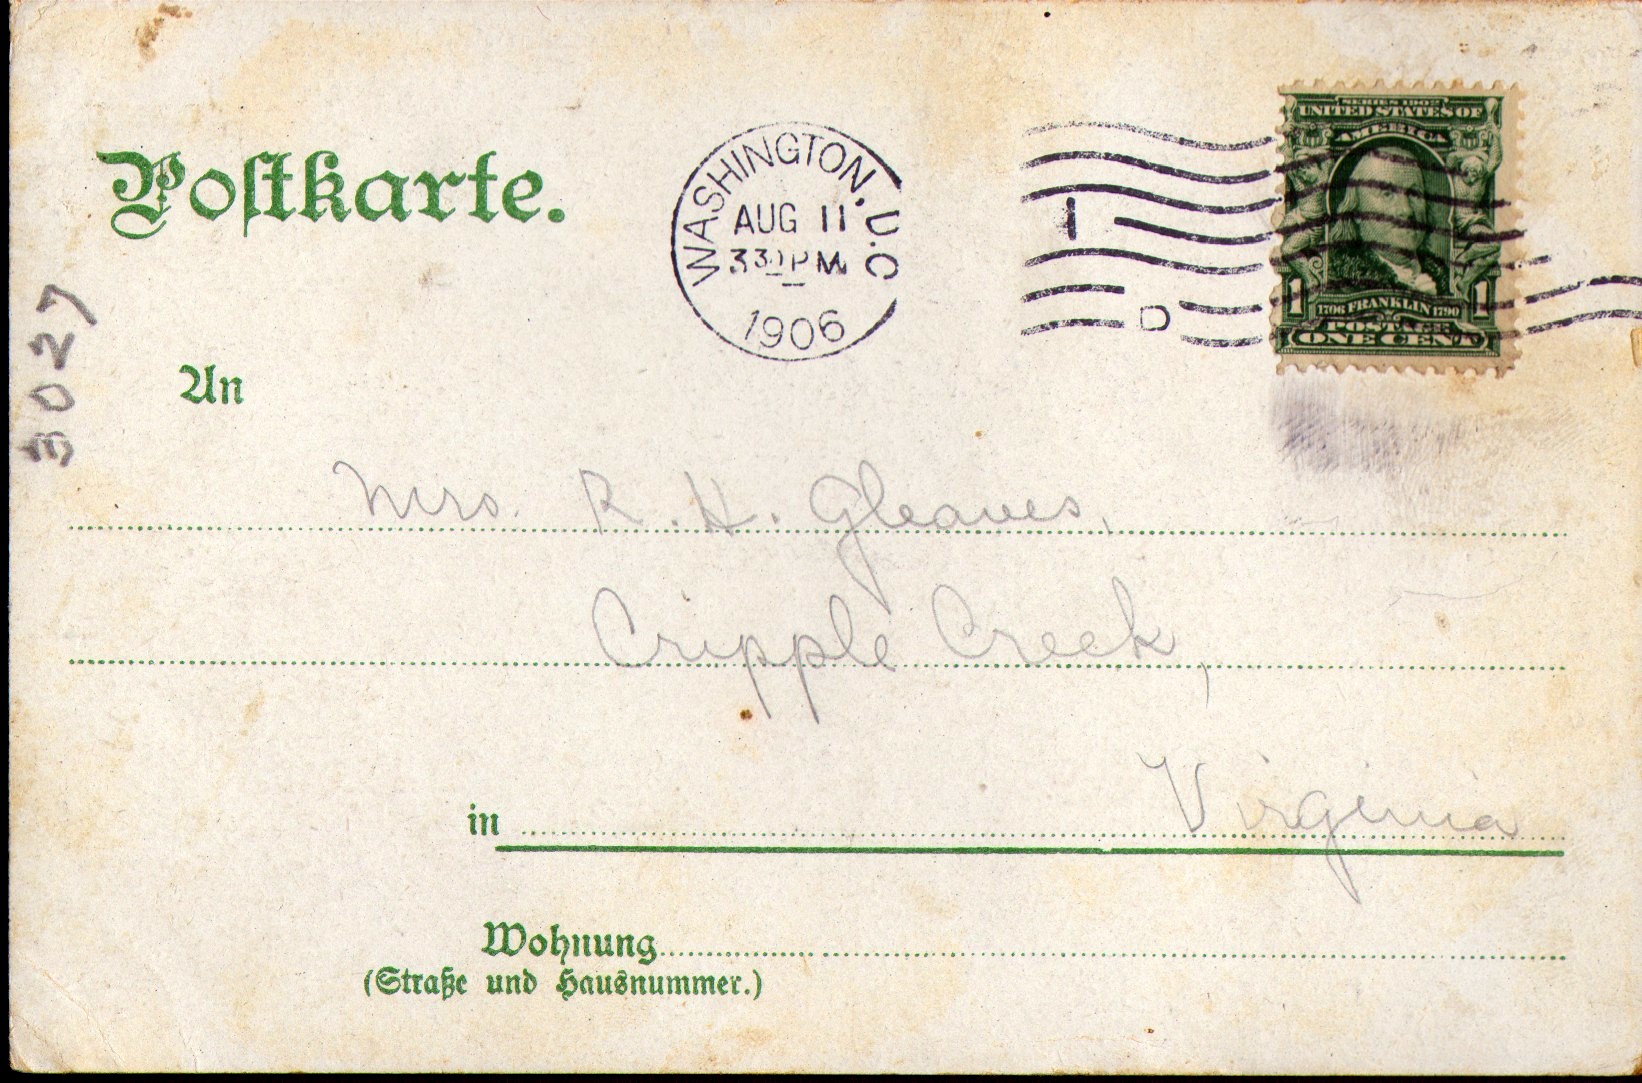 Postkarte.
WASHINGTON, D.C
AUG 11
330 PM
1906
1
D
SERIES 1902
UNITED STATES OF
AMERICA
1 1706 FRANKLIN 1790 1
POSTAGE
ONE CENT
3027
An
Mrs. R. H. Gleaves,
Cripple Creek,
in Virginia
Wohnung
(Straße und Hausnummer.)